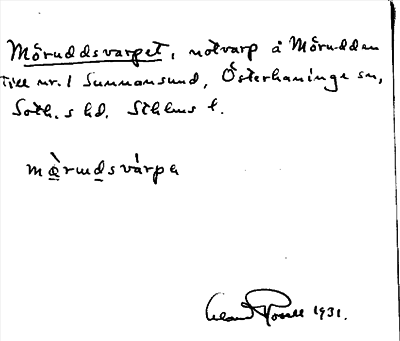 Möruddsvarpet, notvarp å Mörudden
till nr. 1 Sunnansund, Österhaninge sn,
Soth.s hd. Sthlms l.
mö̀rudsvárpe
1931.